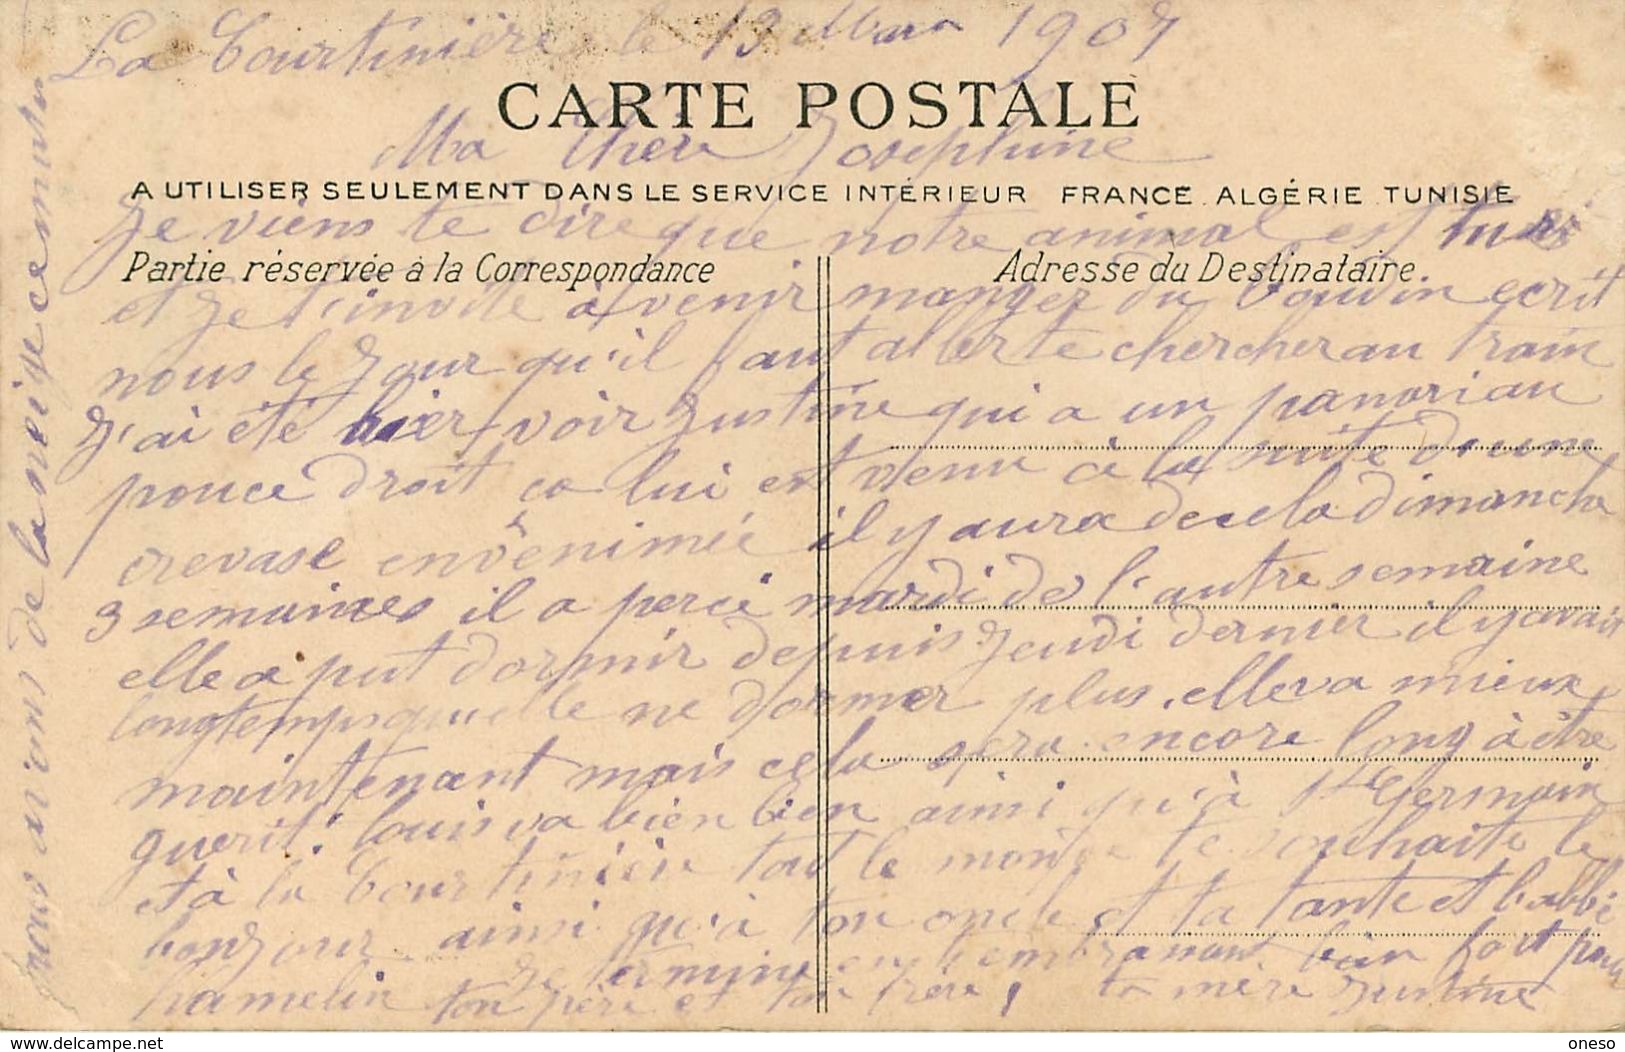 La Courtinière le 13 Mars 1907
CARTE POSTALE
Ma Chere Josephine
A UTILISER SEULEMENT DANS LE SERVICE INTÉRIEUR FRANCE. ALGÉRIE TUNISIE
Je viens te dire que notre animal est
Partie réservée à la Correspondance
Adresse du Destinataire
et je t'invite à venir manger du boudin ecrit
nous le jour qu'il faut aller te chercher au train
J'ai été hier voir Justine qui a un panari au
pouce droit ça lui est venu à la suite d'une
crevase envenimée il y aura de cela dimanche
3 semaines il a percé mardi de l'autre semaine
elle a put dormir depuis jeudi dernier il y avait
longtemps qu'elle ne dormer plus. elle va mieux
maintenant mais cela sera encore long à être
guerit. Louis va bien bien ainsi qu'à St Germain
et à la Courtinière tout le monde te souhaite le
bonjour ainsi qu'à ton oncle et ta tante et l'abbé
hamelin Je termine en t'embrassant bien fort pour
ton père et ton frère, ta mère Justine
nous avions de la neige ce matin
CARTE-POSTALE / delcampe.net
oneso